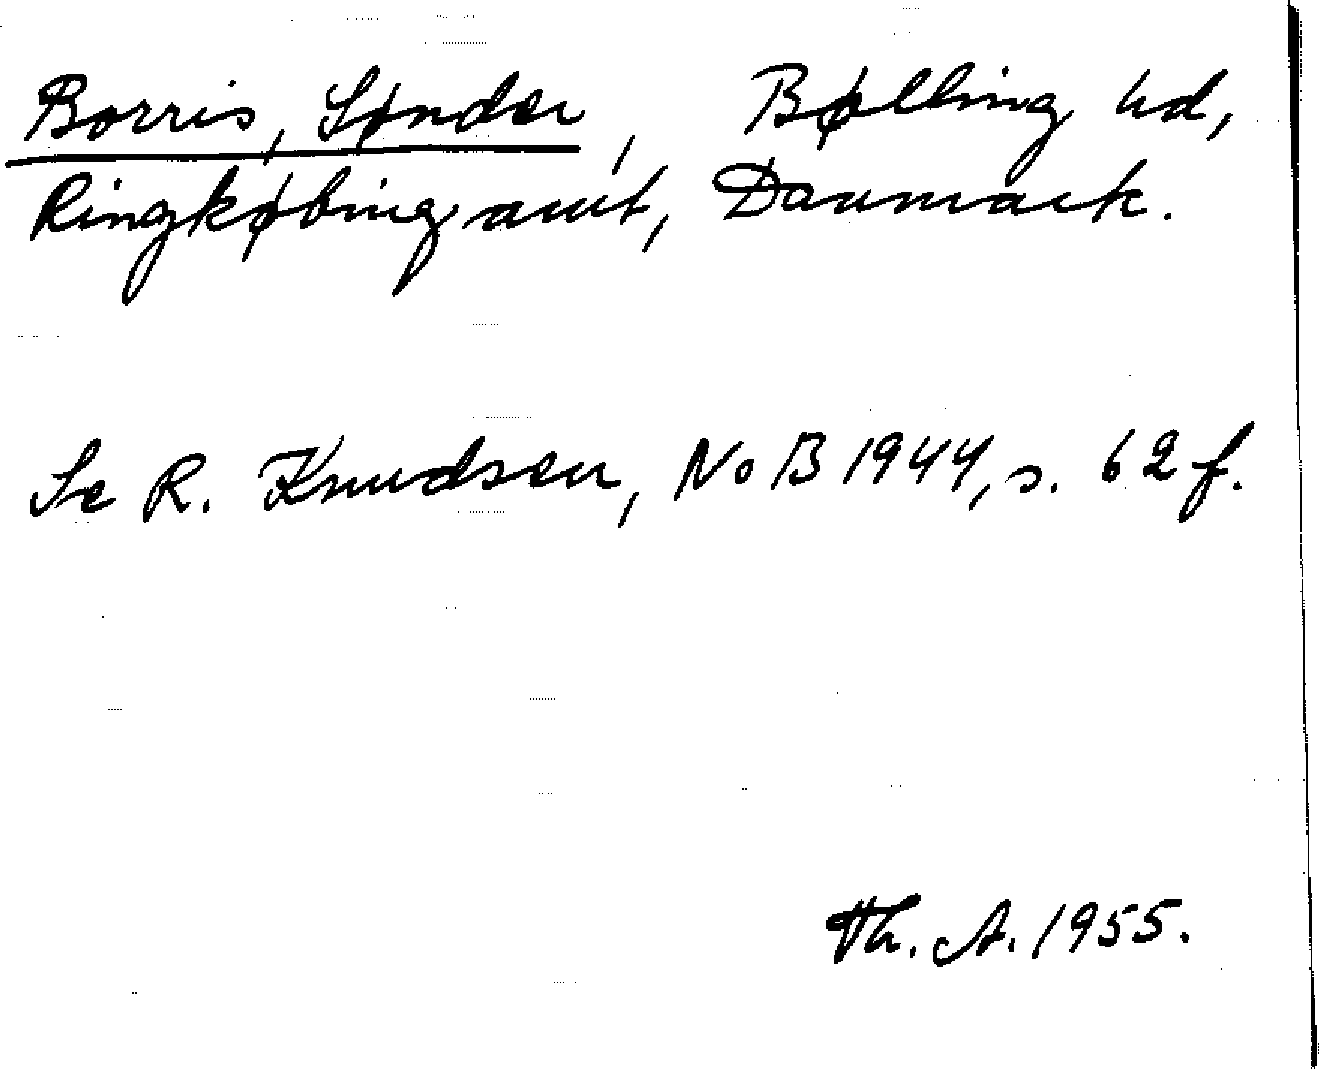 Borris, Sønder, Bølling hd,
Ringkøbing amt, Danmark.
Se R. Knudsen, NoB 1944, s. 62 f.
Th. A. 1955.